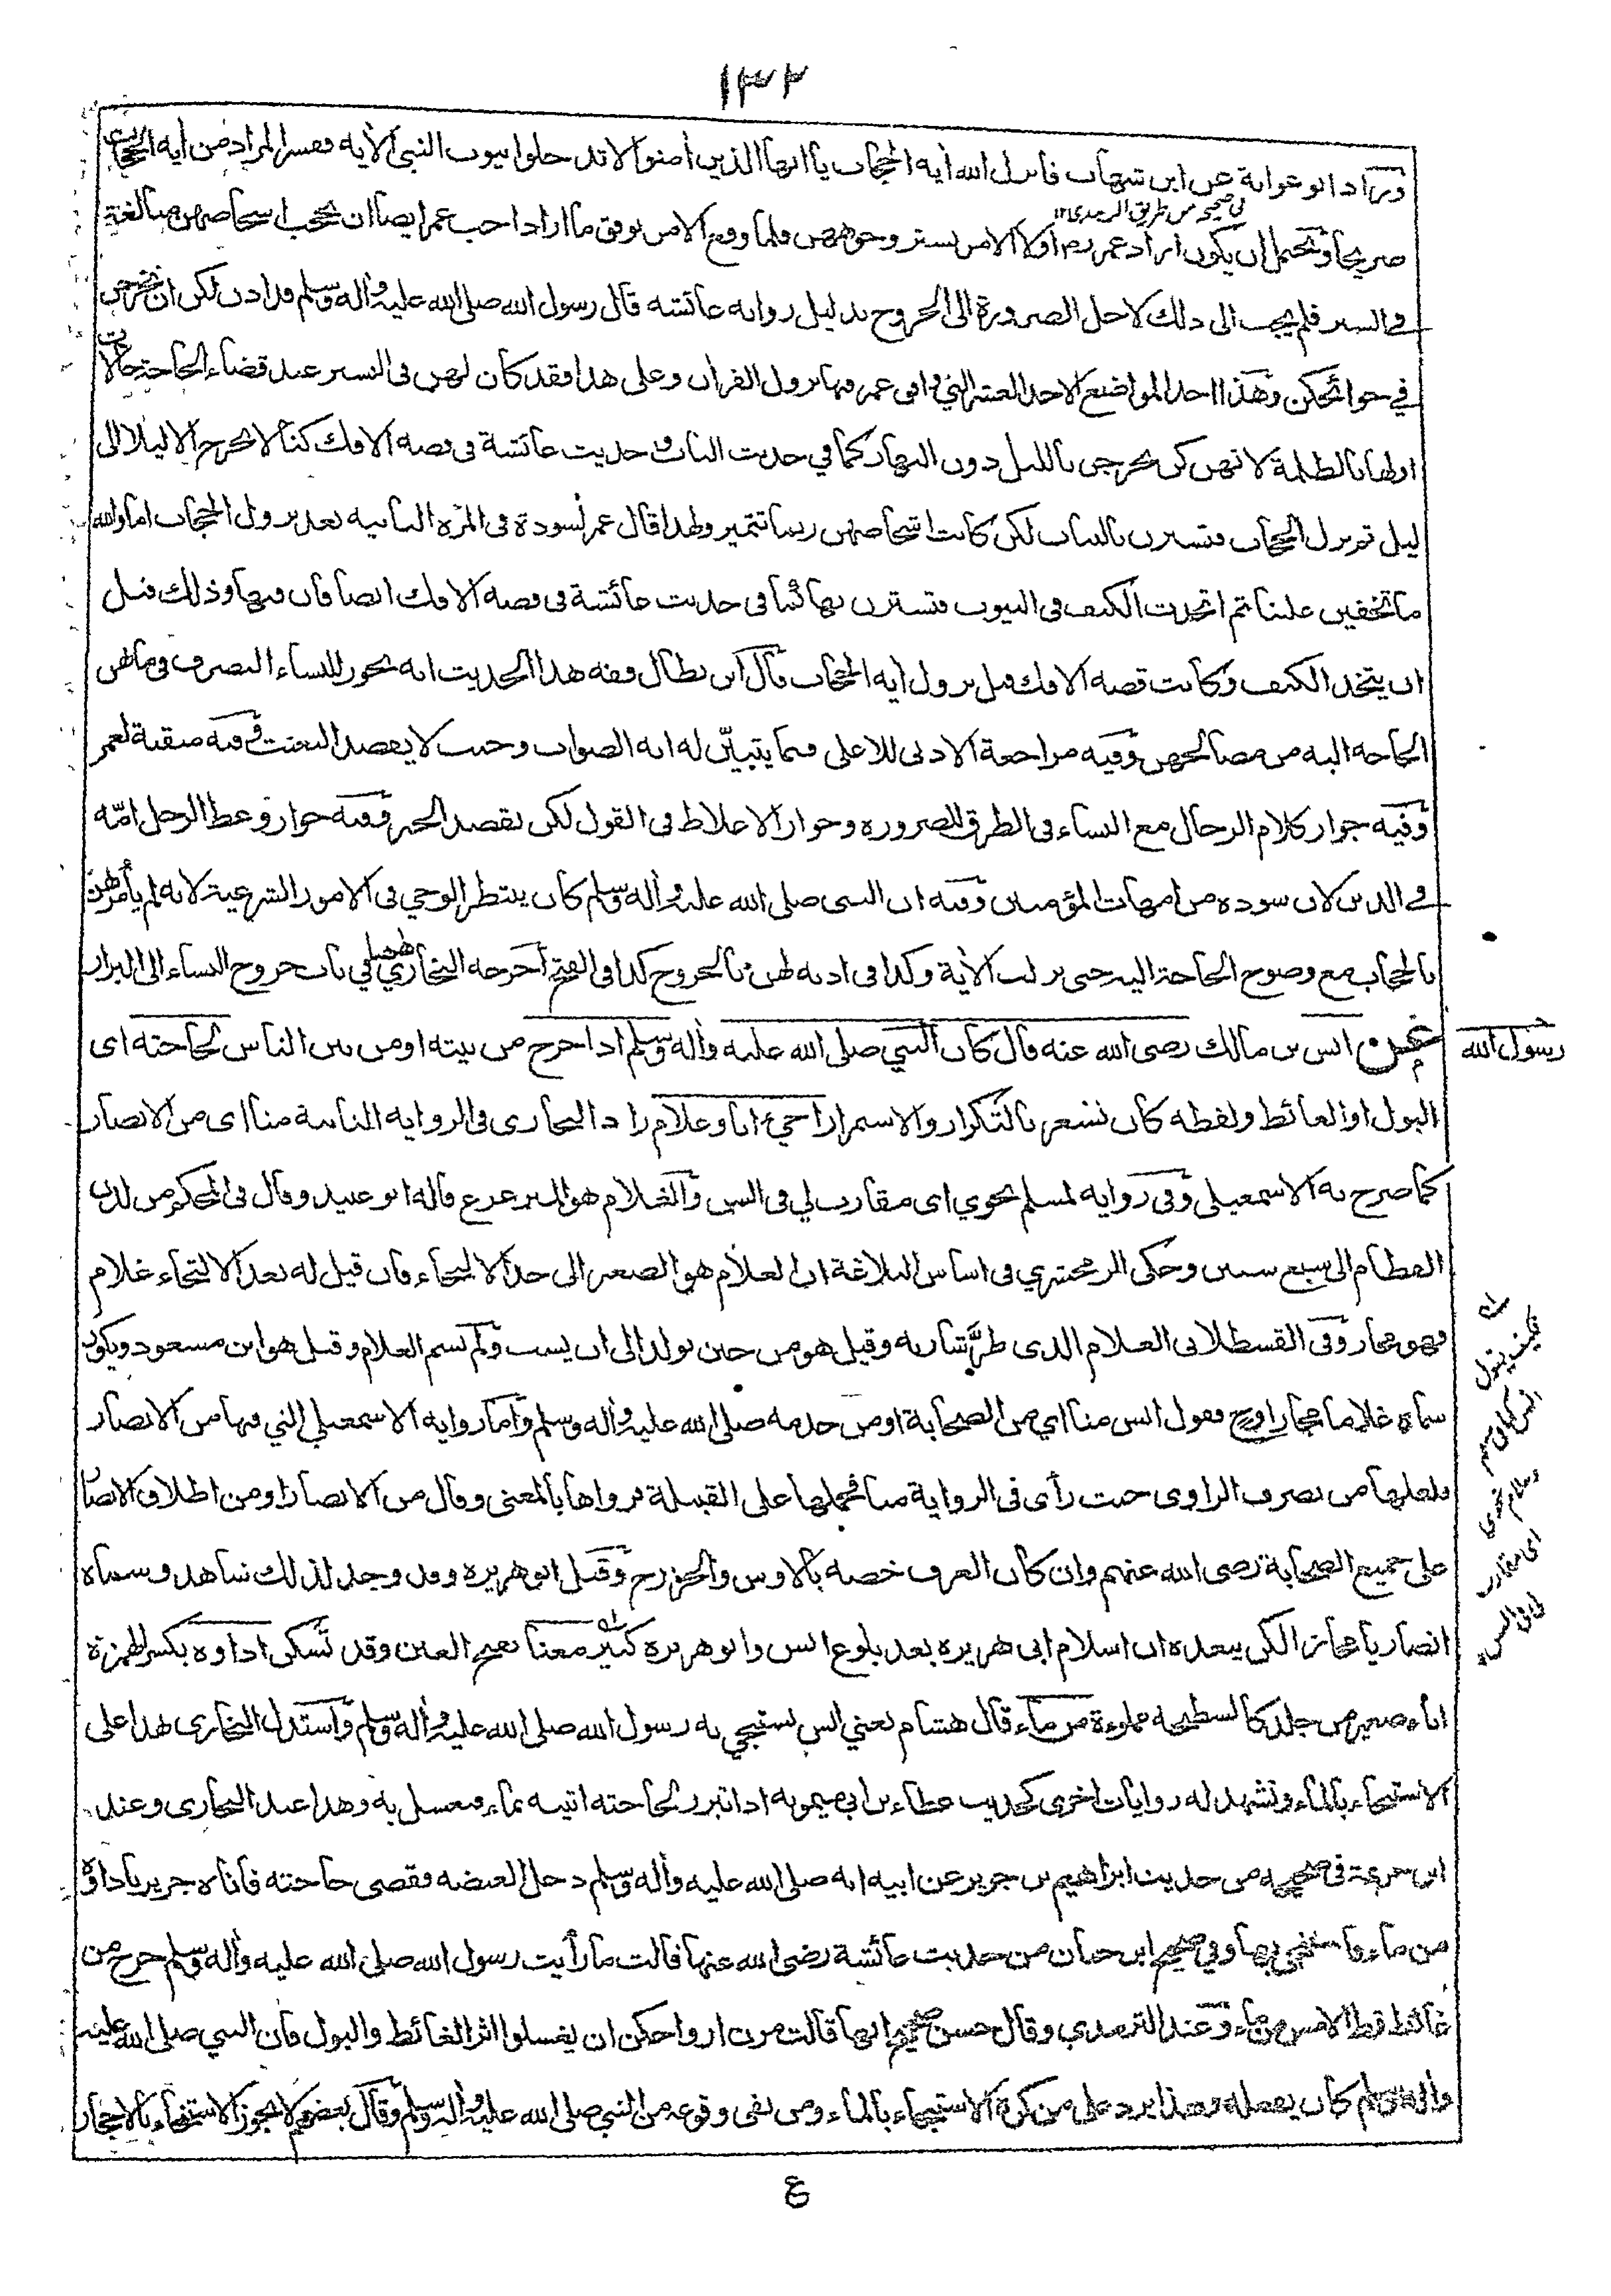 ١٣٢
وزاد ابو عوانة عن ابن شهاب فانزل الله أية الحجاب يا ايها الذين أمنوا لا تدخلوا بيوت النبي الأية ففسر المراد من أية الحجاب
في صحيحه من طريق الزبيدي ١٢
صريحا ويحتمل ان يكون اراد عمر رض اولا الامر بستر وجوههن فلما وقع الامر بوفق ما اراد احب عمر ايضا ان يحجب اشخاصهن مبالغة
في الستر فلم يجب الى ذلك لاجل الضرورة الى الخروج بدليل رواية عائشة قال رسول الله صلى الله عليه وأله وسلم قد اذن لكن ان تخرجن
في حوائجكن وهذا احد المواضع الاحد العشر التي وافق عمر فيها نزول القرأن وعلى هذا فقد كان لهن في التستر عند قضاء الحاجة حالات
اولها بالظلمة لانهن كن يخرجن بالليل دون النهار كما في حديث الباب وفي حديث عائشة في قصة الافك كنا لا نخرج الا ليلا الى
ليل ثم نزل الحجاب فتسترن بالثياب لكن كانت اشخاصهن ربما تتميز ولهذا قال عمر لسودة في المرة الثانية بعد نزول الحجاب اما والله
ما تخفين علينا ثم اتخذت الكنف في البيوت فتسترن بها كما في حديث عائشة في قصة الافك ايضا فان فيها وذلك قبل
ان يتخذ الكنف وكانت قصة الافك قبل نزول أية الحجاب قال ابن بطال فقه هذا الحديث انه يجوز للنساء التصرف فيما لهن
الحاجة اليه من مصالحهن وفيه مراجعة الادنى للاعلى فيما يتبين له انه الصواب وحيث لا يقصد التعنت وفيه منقبة لعمر
وفيه جواز كلام الرجال مع النساء في الطرق للضرورة وجواز الاغلاظ في القول لكن بقصد الخير وفيه جواز وعظ الرجل امه
في الدين لان سودة من امهات المؤمنين وفيه ان النبي صلى الله عليه وأله وسلم كان ينتظر الوحي في الامور الشرعية لانه لم يأمرهن
بالحجاب مع وضوح الحاجة اليه حتى نزلت الأية وكذا في اذنه لهن بالخروج كذا في الفتح أخرجه البخاري ههنا في باب خروج النساء الى البراز
رسول الله
عن انس بن مالك رضى الله عنه قال كان النبي صلى الله عليه وأله وسلم اذا خرج من بيته او من بين الناس لحاجته اى
البول او الغائط ولفظه كان تشعر بالتكرار والاستمرار اجيء انا وغلام زاد البخارى في الرواية الثانية منا اى من الانصار
كما صرح به الاسمعيلى وفى رواية لمسلم نحوي اى مقارب لي في السن والغلام هو المترعرع قاله ابو عبيد وقال في المحكم من لدن
الفطام الى سبع سنين وحكى الزمخشري في اساس البلاغة ان الغلام هو الصغير الى حد الالتحاء فان قيل له بعد الالتحاء غلام
فهو مجاز وفى القسطلانى الغلام الذى طر شاربه وقيل هو من حين يولد الى ان يشب ولم يسم الغلام وقيل هو ابن مسعود ويكون
سماه غلاما مجازا وح فقول انس منا اي من الصحابة او من خدمه صلى الله عليه وأله وسلم واما رواية الاسمعيلي التي فيها من الانصار
فلعلها من تصرف الراوى حيث رأى في الرواية منا فحملها على القبيلة فرواها بالمعنى وقال من الانصار او من اطلاق الانصار
على جميع الصحابة رضى الله عنهم وان كان العرف خصه بالاوس والخزرج وقيل ابو هريرة وقد وجد لذلك شاهد وسماه
انصاريا مجازا لكن يبعده ان اسلام ابى هريرة بعد بلوغ انس وابو هريرة كبير معنا بفتح العين وقد تسكن اداوة بكسر الهمزة
اناء صغير من جلد كالسطيحة مملوءة من ماء قال هشام يعني انس يستنجي به رسول الله صلى الله عليه وأله وسلم واستدل البخارى بهذا على
الاستنجاء بالماء وتشهد له روايات اخرى كحديث عطاء بن ابي ميمونة اذا تبرز لحاجته اتيته بماء فيغسل به وهذا عند البخارى وعند
ابن خزيمة في صحيحه من حديث ابراهيم بن جرير عن ابيه انه صلى الله عليه وأله وسلم دخل الغيضة فقضى حاجته فأتاه جرير باداوة
من ماء فاستنجى بها وفي صحيح ابن حبان من حديث عائشة رضى الله عنها قالت ما رأيت رسول الله صلى الله عليه وأله وسلم خرج من
غائط قط الا مس من ماء وعند الترمذي وقال حسن صحيح انها قالت مرن ازواجكن ان يغسلوا اثر الغائط والبول فان النبي صلى الله عليه
وأله وسلم كان يفعله وهذا يرد على من كره الاستنجاء بالماء ومن نفى وقوعه من النبي صلى الله عليه وأله وسلم وقال بعضهم لا يجوز الاستنجاء بالاحجار
وغلام نحوى
اى مقارب
لى فى السن
ع